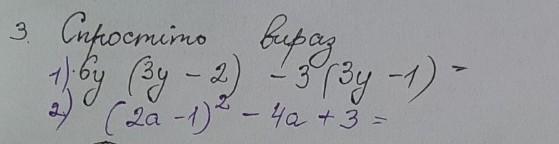 3. Спростіто вираз
1) 6y (3y - 2) - 3(3y - 1) =
2) (2a - 1)² - 4a + 3 =